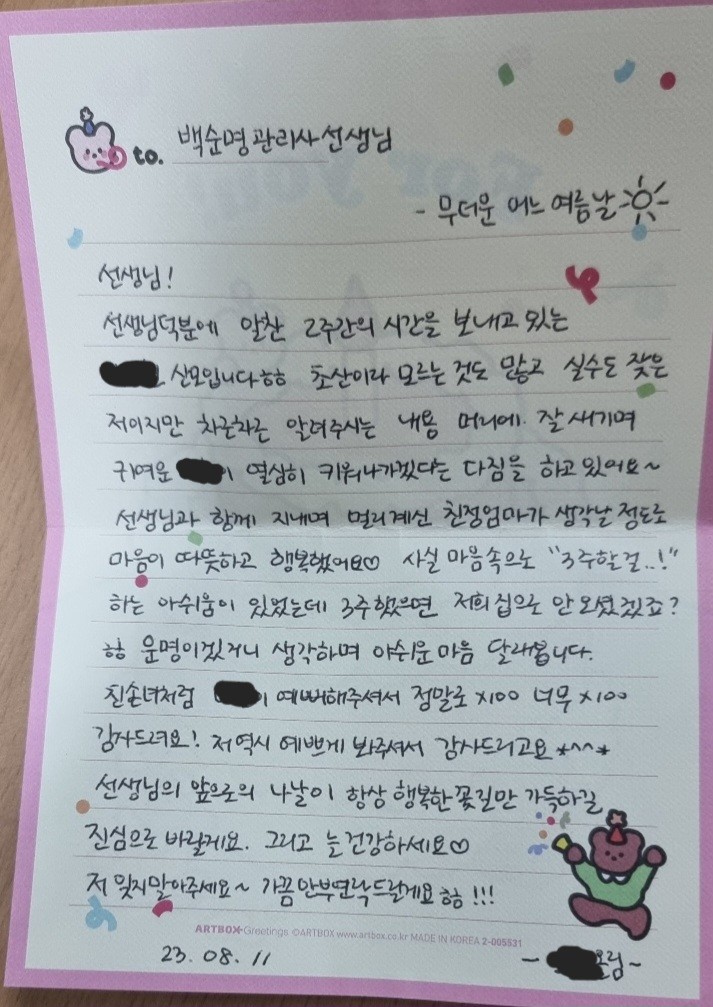 to. 백순명관리사선생님
- 무더운 어느 여름날
선생님!
선생님덕분에 알찬 2주간의 시간을 보내고 있는
산모입니다ㅎㅎ 초산이라 모르는 것도 많고 실수도 잦은
저이지만 차근차근 알려주시는 내용 머리에 잘 새기며
귀여운 이 열심히 키워나가겠다는 다짐을 하고 있어요~
선생님과 함께 지내며 멀리계신 친정엄마가 생각날 정도로
마음이 따뜻하고 행복했어요♡ 사실 마음속으로 "3주할걸..!"
하는 아쉬움이 있었는데 3주했으면 저희집으로 안오셨겠죠?
ㅎㅎ 운명이겠거니 생각하며 아쉬운마음 달래봅니다.
친손녀처럼 이 예뻐해주셔서 정말로 x100 너무 x100
감사드려요! 저 역시 예쁘게 봐주셔서 감사드리고요 *^^*
선생님의 앞으로의 나날이 항상 행복한 꽃길만 가득하길
진심으로 바랄게요. 그리고 늘 건강하세요♡
저 잊지말아주세요~ 가끔 안부연락드릴게요 ㅎㅎ !!!
ARTBOX Greetings ©ARTBOX www.artbox.co.kr MADE IN KOREA 2-005531
23. 08. 11
~ 올림~